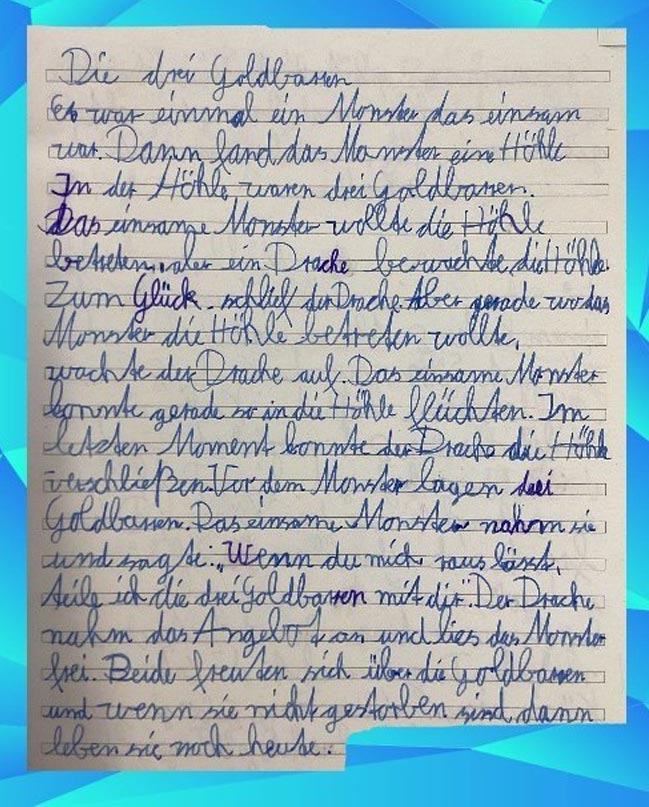 Die drei Goldbarren
Es war einmal ein Monster das einsam
war. Dann fand das Monster eine Höhle
In der Höhle waren drei Goldbarren.
Das einsame Monster wollte die Höhle
betreten, aber ein Drache bewachte die Höhle.
Zum Glück schlief der Drache. Aber gerade wo das
Monster die Höhle betreten wollte,
wachte der Drache auf. Das einsame Monster
konnte gerade so in die Höhle flüchten. Im
letzten Moment konnte der Drache die Höhle
verschließen. Vor dem Monster lagen drei
Goldbarren. Das einsame Monster nahm sie
und sagte: „Wenn du mich raus lässt,
teile ich die drei Goldbarren mit dir". Der Drache
nahm das Angebot an und lies das Monster
frei. Beide freuten sich über die Goldbarren
und wenn sie nicht gestorben sind dann
leben sie noch heute.